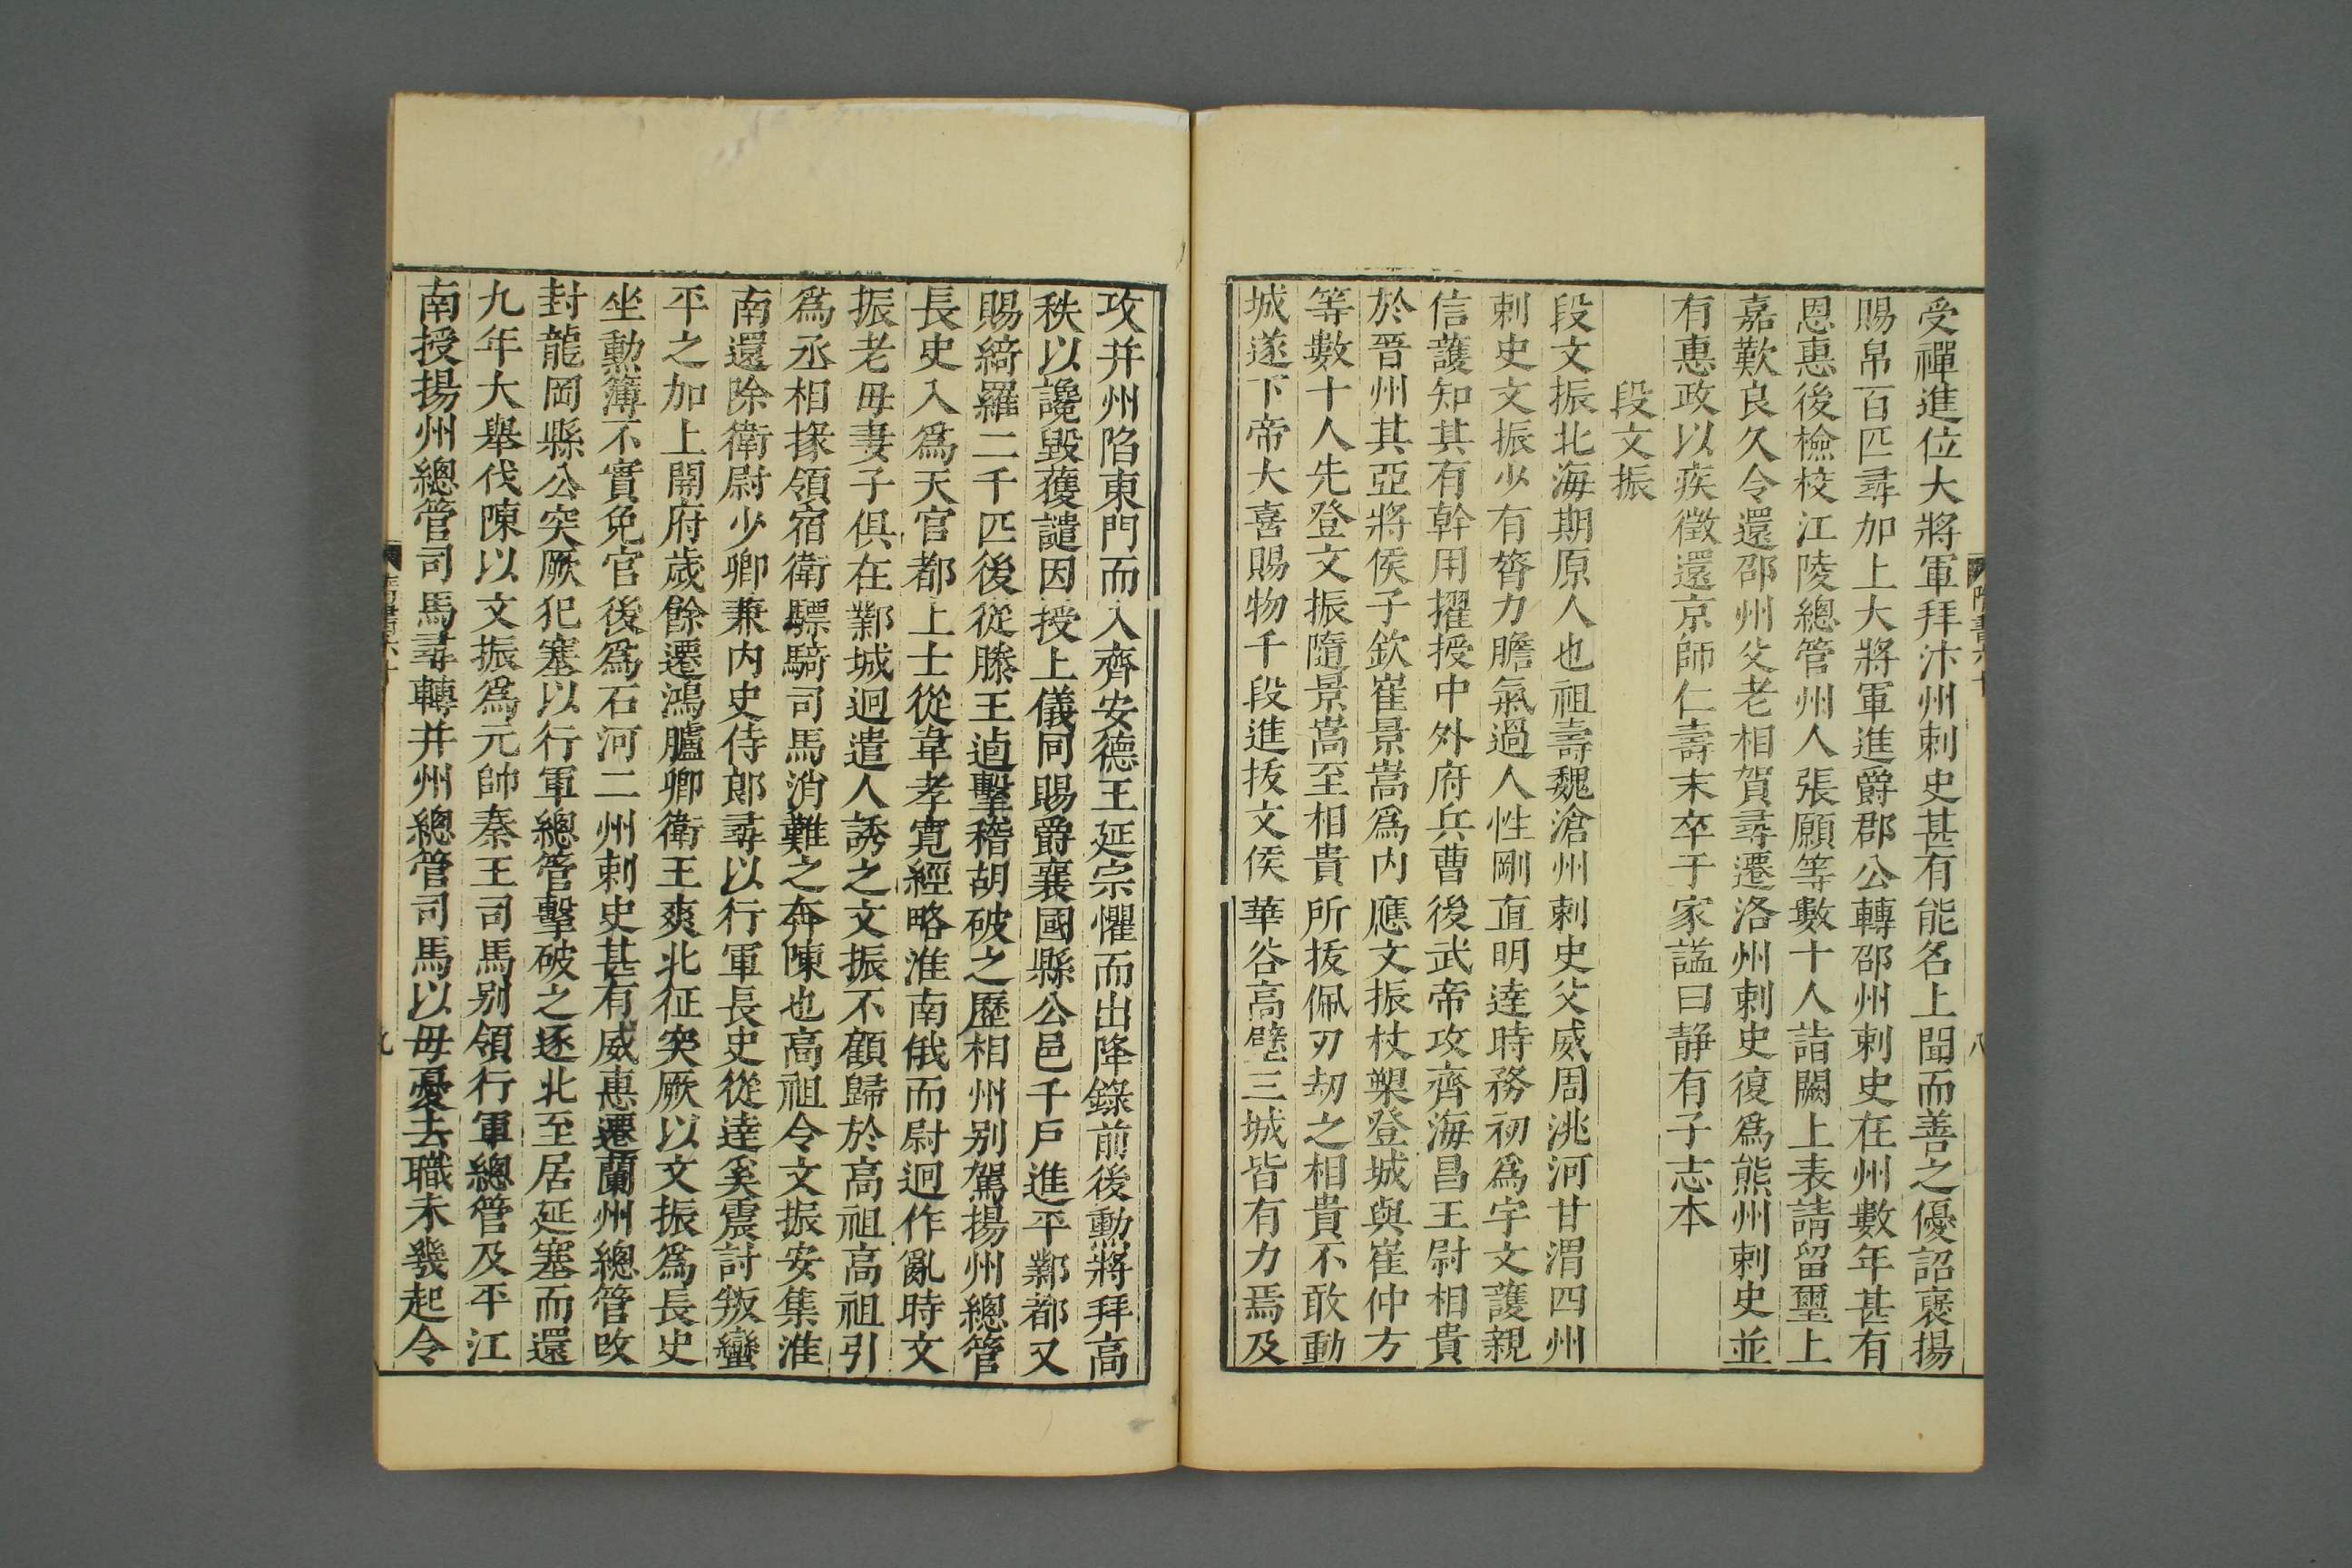 受禪進位大將軍拜汴州刺史甚有能名上聞而善之優詔褒揚
賜帛百匹尋加上大將軍進爵郡公轉邵州刺史在州數年甚有
恩惠後檢校江陵總管州人張願等數十人詣闕上表請留璽上
嘉歎良久令還邵州父老相賀尋遷洛州刺史復爲熊州刺史並
有惠政以疾徵還京師仁壽末卒于家謚曰靜有子志本
段文振
段文振北海期原人也祖壽魏滄州刺史父威周洮河甘渭四州
刺史文振少有膂力膽氣過人性剛直明達時務初爲宇文護親
信護知其有幹用擢授中外府兵曹後武帝攻齊海昌王尉相貴
於晉州其亞將侯子欽崔景嵩爲内應文振杖槊登城與崔仲方
等數十人先登文振隨景嵩至相貴所拔佩刃劫之相貴不敢動
城遂下帝大喜賜物千段進拔文侯華谷高壁三城皆有力焉及
攻并州陷東門而入齊安德王延宗懼而出降錄前後勳將拜高
秩以讒毀獲譴因授上儀同賜爵襄國縣公邑千戶進平鄴都又
賜綺羅二千匹後從滕王逌擊稽胡破之歷相州别駕揚州總管
長史入爲天官都上士從韋孝寬經略淮南俄而尉迥作亂時文
振老毋妻子俱在鄴城迥遣人誘之文振不顧歸於高祖高祖引
爲丞相掾領宿衛驃騎司馬消難之奔陳也高祖令文振安集淮
南還除衛尉少卿兼内史侍郎尋以行軍長史從達奚震討叛蠻
平之加上開府歲餘遷鴻臚卿衛王爽北征突厥以文振爲長史
坐勳簿不實免官後爲石河二州刺史甚有威惠遷蘭州總管改
封龍岡縣公突厥犯塞以行軍總管擊破之逐北至居延塞而還
九年大舉伐陳以文振爲元帥秦王司馬别領行軍總管及平江
南授揚州總管司馬尋轉并州總管司馬以毋憂去職未幾起令
隋書六十
八
九